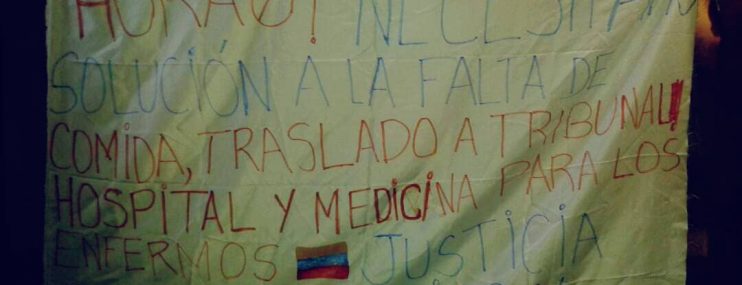 NECESITAM
SOLUCIÓN A LA FALTA DE
COMIDA, TRASLADO A TRIBUNAL
HOSPITAL Y MEDICINA PARA LOS
ENFERMOS JUSTICIA